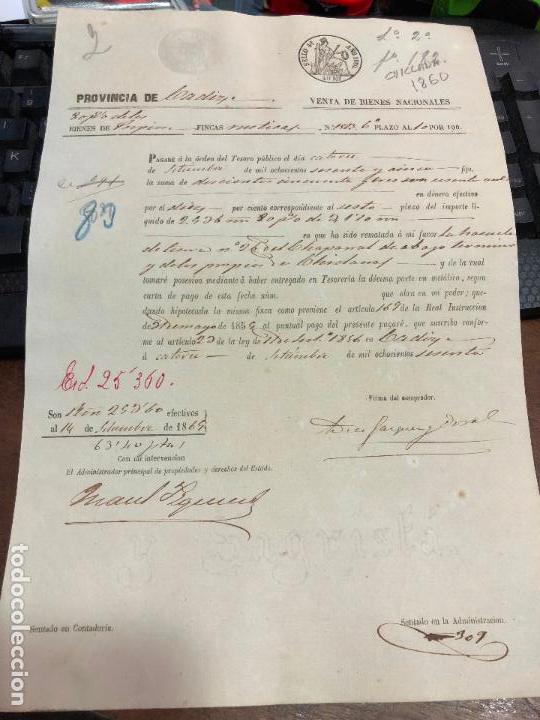 2
SELLO 9º AÑO 1860
1ª 2ª
CHICLANA
1860
PROVINCIA DE Cadiz VENTA DE BIENES NACIONALES
80 p% de los
BIENES DE Propios FINCAS rusticas N. 6º PLAZO AL 10 POR 100.
PAGARÉ á la órden del Tesoro público el dia catorce
de Setiembre de mil ochocientos sesenta y cinco fijo
la suma de doscientos cincuenta y tres
en dinero efectivo
por el diez por ciento correspondiente al sesto plazo del importe
líquido de 2536 80 p%
en que ha sido rematada á mi favor la
de tierra nº el Chaparral de abajo termino
y de los propios de Chiclana y de la cual
tomaré posesion mediante á haber entregado en Tesorería la décima parte en metálico, segun
carta de pago de esta fecha núm. que obra en mi poder; que-
dando hipotecada la misma finca como previene el artículo 169 de la Real Instruccion
de 31 mayo de 1855 al puntual pago del presente pagaré, que suscribo confor-
me al artículo 23 de la ley de 1856 en Cadiz
á catorce de Setiembre de mil ochocientos sesenta
803
Ed. 25'360.
Firma del comprador.
Son Rvon 253'60 efectivos
al 14 de Setiembre de 1865
63'40 ptas
Con mi intervencion
El Administrador principal de propiedades y derechos del Estado.
Manuel
Sentado en Contaduría.
Sentado en la Administracion.
309
todocoleccion
todocoleccion